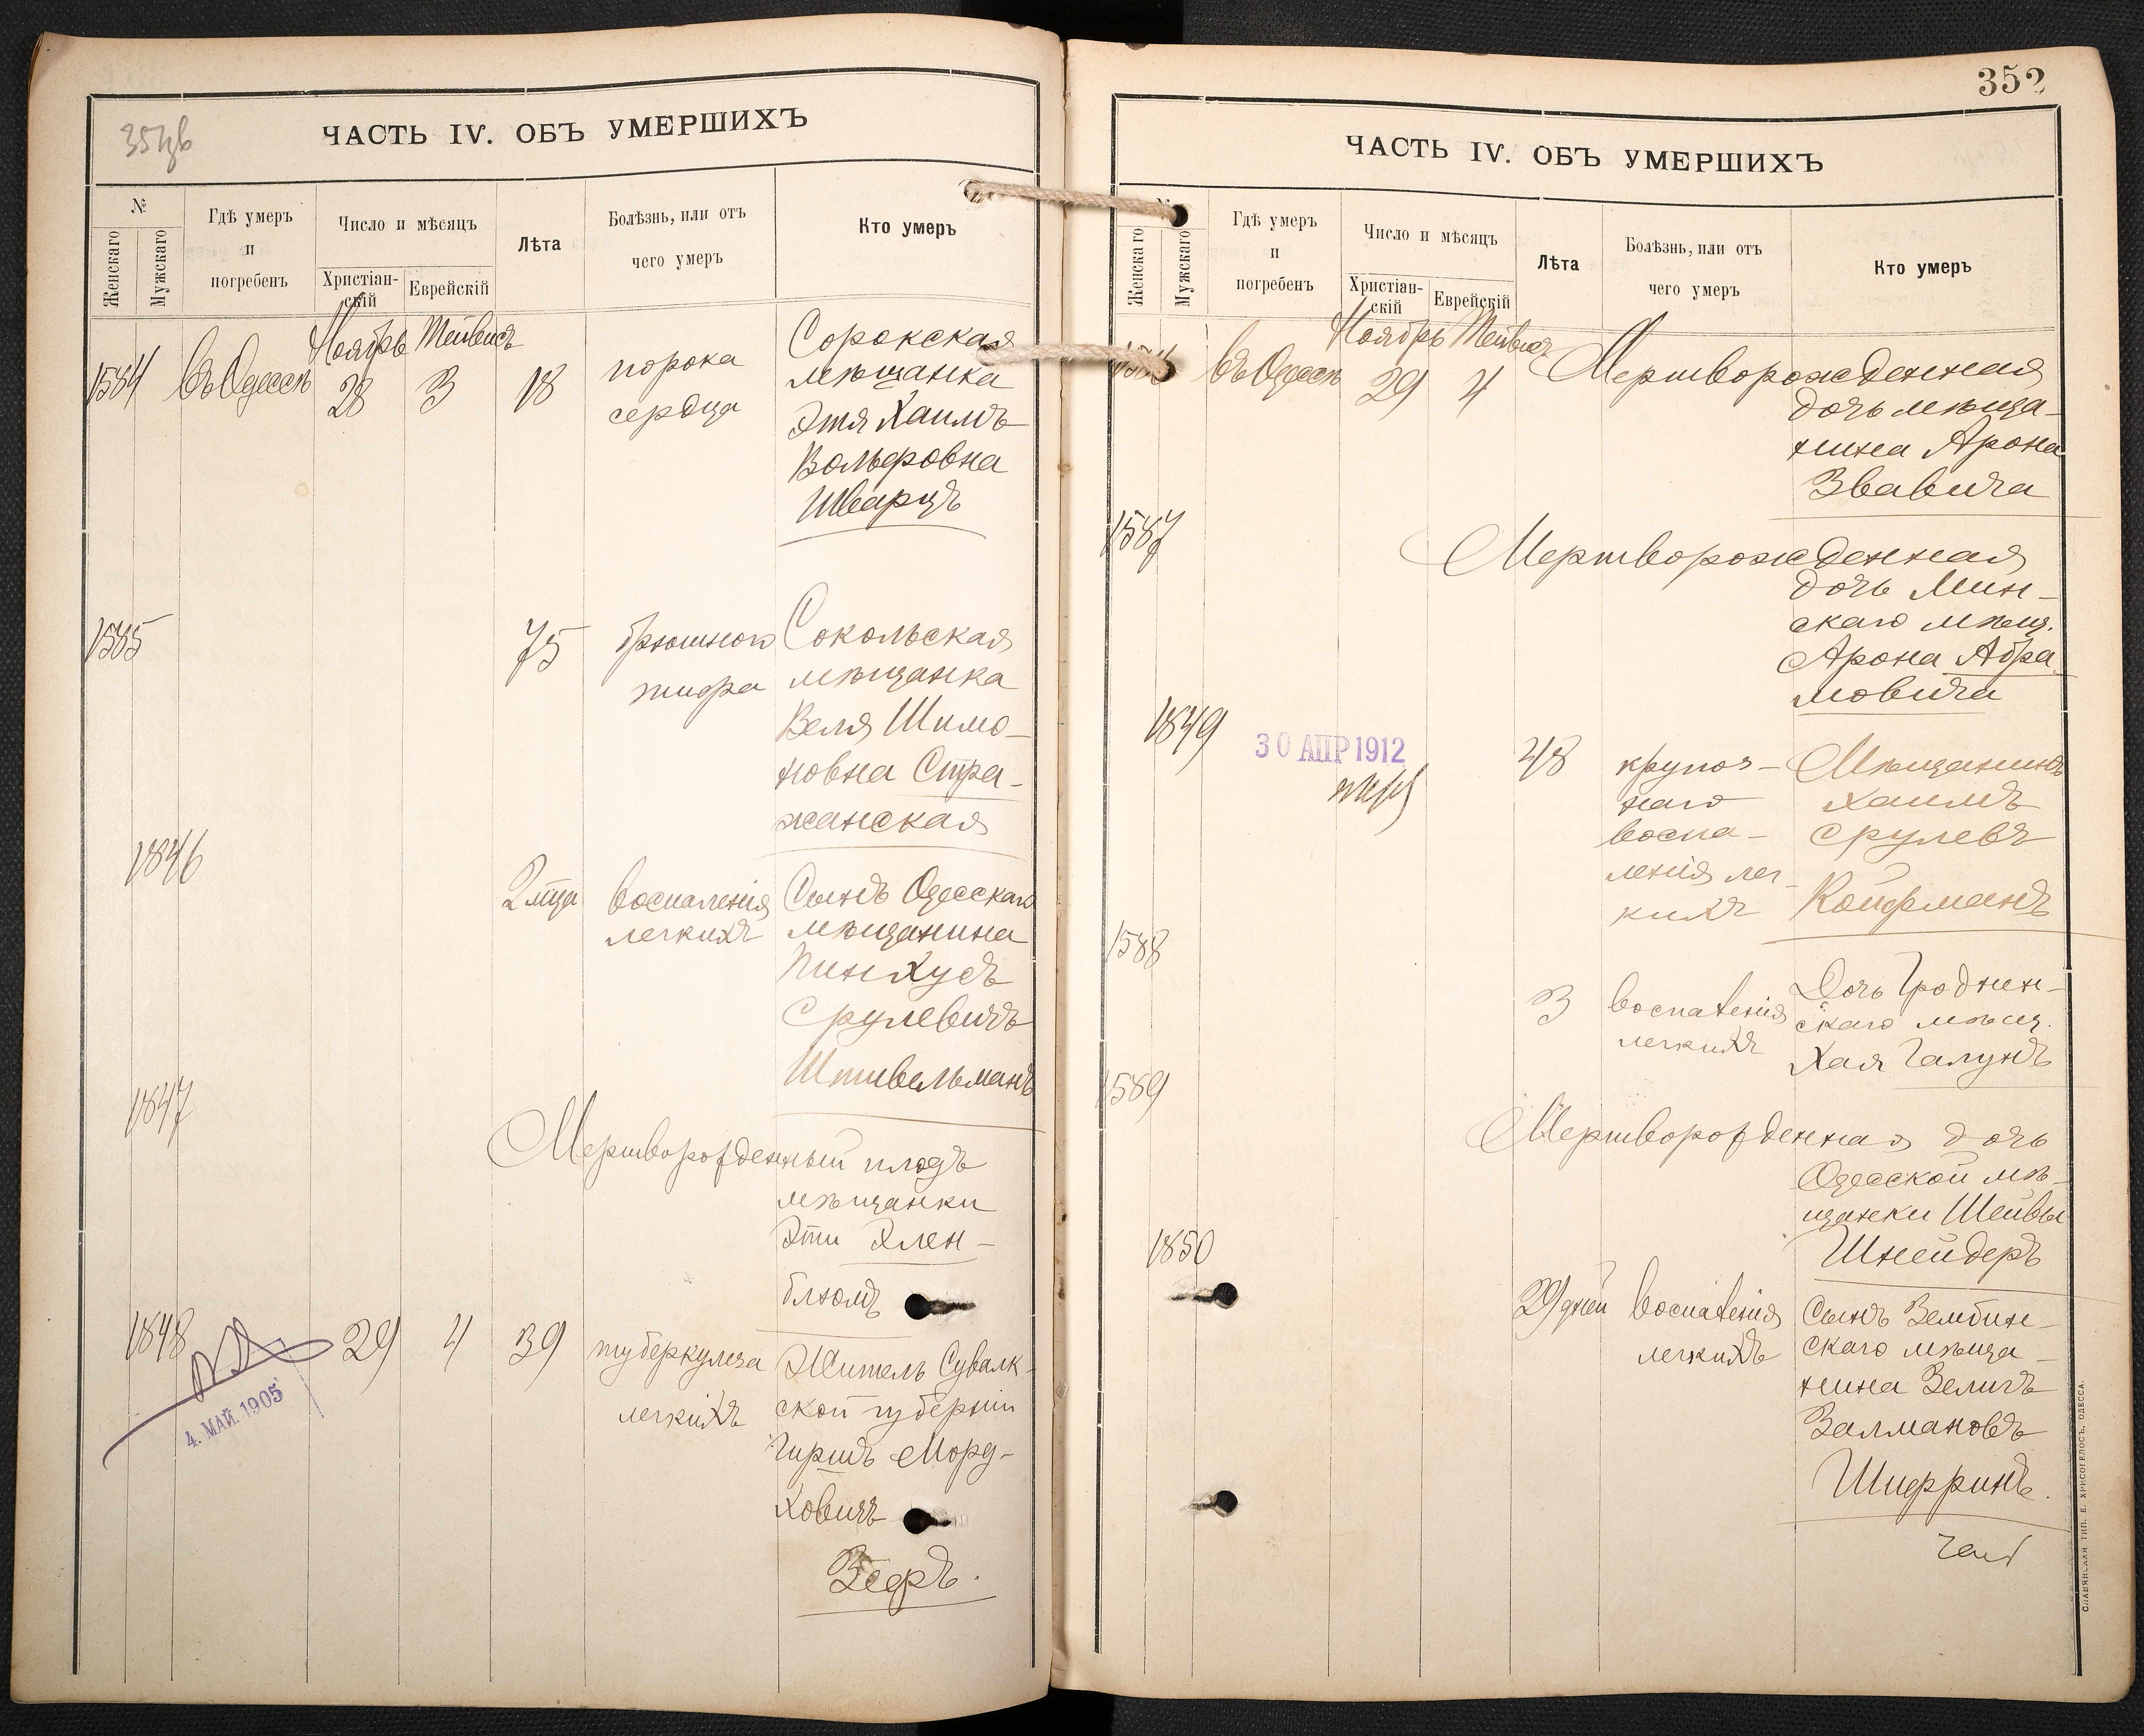 35цв
ЧАСТЬ IV. ОБЪ УМЕРШИХЪ
№
Женскаго
Мужскаго
Гдѣ умеръ
и
погребенъ
Число и мѣсяцъ
Христіан-
скій
Еврейскій
Лѣта
Болѣзнь, или отъ
чего умеръ
Кто умеръ
Ноябрь Тейвисъ
1584 въ Одессѣ 28 3 18
порока
сердца
Сорокская
мѣщанка
Этя Хаимъ
Вольфовна
Шварцъ
1585 75
брюшного
тифа
Сокольская
мѣщанка
Веля Шимо-
новна Стра-
жанская
1846
2 м-ца воспаленія
легкихъ
Сынъ Одесскаго
мѣщанина
Пинхусъ
Срулевичъ
Штивельманъ
1847
Мертворожденный плодъ
мѣщанки
Эти Элен-
блюмъ
1848 29 4 39
туберкулеза
легкихъ
Житель Сувалк-
ской губерніи
Гиршъ Морд-
ховичъ
Зефъ.
4. МАЙ. 1905
352
ЧАСТЬ IV. ОБЪ УМЕРШИХЪ
Женскаго
Мужскаго
Гдѣ умеръ
и
погребенъ
Число и мѣсяцъ
Христіан-
скій
Еврейскій
Лѣта
Болѣзнь, или отъ
чего умеръ
Кто умеръ
Ноябрь Тейвисъ
въ Одессѣ 29 4
Мертворожденная
дочь мѣща-
нина Арона
Звавича
1587
Мертворожденная
дочь Мин-
скаго мѣщ.
Арона Абра
мовича
1849
30 АПР 1912
48
крупоз-
наго
воспа-
ленія лег-
кихъ
Мѣщанинъ
Хаимъ
Срулевъ
Койфманъ
1588
3 воспаленія
легкихъ
Дочь Гроднен-
скаго мѣщ.
Хая Галунъ
1589
Мертворожденная дочь
Одесской мѣ-
щанки Шейвы
Шнейдеръ
1850
29 дней воспаленія
легкихъ
Сынъ Зембин-
скаго мѣща-
нина Зеликъ
Залмановъ
Шифринъ.
СЛАВЯНСКАЯ ТИП. Е. ХРИСОГЕЛОСЪ, ОДЕССА.